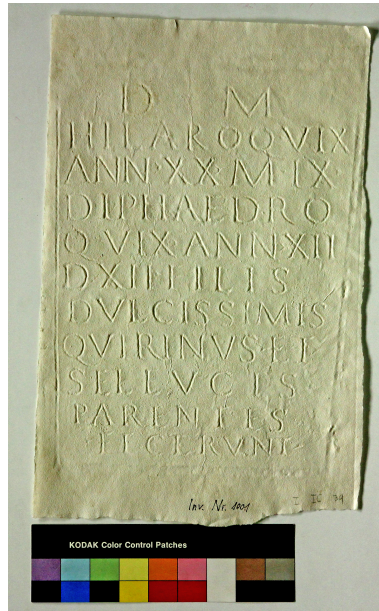 D M
HILARO Q VIX
ANN·XX·M·IX·
DI PHAEDRO
Q VIX·ANN·XII
D·XIII FILIS
DVLCISSIMIS
QVIRINVS·ET
PARENTES
FECERVNT
Inv. Nr. 1001
KODAK Color Control Patches